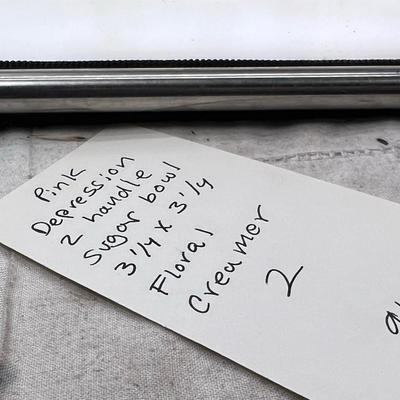 Pink
Depression
2 handle
Sugar bowl
3 1/4 x 3 1/4
Floral
Creamer
2